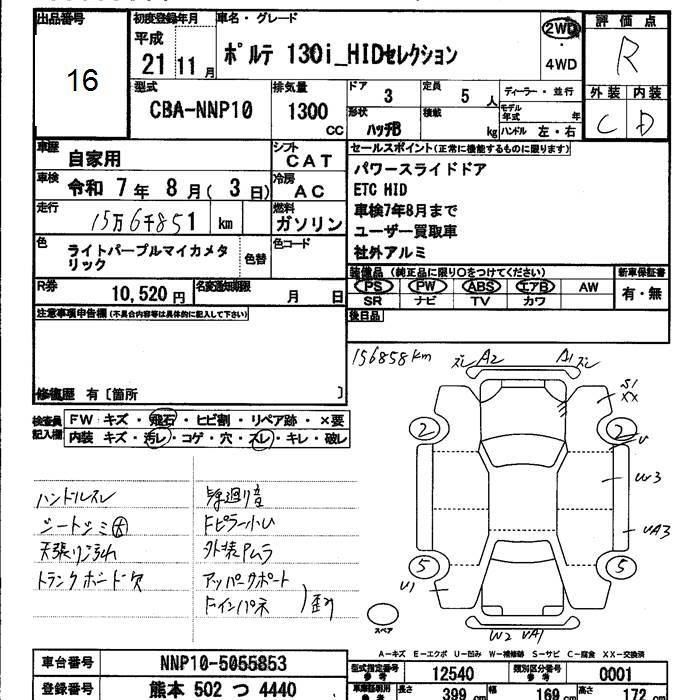 出品番号
16
初度登録年月
平成
21 11 月
車名・グレード
ポルテ 130i_HIDセレクション
2WD
・
4WD
評価点
R
外装 内装
C D
型式
CBA-NNP10
排気量
1300
CC
ドア
3
定員
5 人
形状
ハッチB
積載
kg
ディーラー・並行
モデル年式 年
ハンドル 左・右
車歴
自家用
シフト
CAT
車検
令和 7年 8月( 3日)
冷房
AC
走行
15万6千851 km
燃料
ガソリン
色
ライトパープルマイカメタ
リック
色替
色コード
R券
10,520 円
名変通知期限
月 日
セールスポイント(正常に機能するものに限ります)
パワースライドドア
ETC HID
車検7年8月まで
ユーザー買取車
社外アルミ
装備品(純正品に限り○をつけてください)
PS PW ABS エアB AW
SR ナビ TV カワ
新車保証書
有・無
後日品
注意事項申告欄(不具合内容等は具体的に記入して下さい)
修復歴 有〔箇所 〕
検査員
記入欄
FW キズ・飛石・ヒビ割・リペア跡・×要
内装 キズ・汚レ・コゲ・穴・スレ・キレ・破レ
ハンドルスレ
シートシミ大
天張り汚れ
トランクボード欠
異廻り音
外装Pムラ
アッパーサポート
156858km
ズレ A2
A1 ズレ
S1
XX
2
2
U
W3
UA3
5
5
U1
W2 UA1
スペア
A-キズ E-エクボ U-凹み W-補修跡 S-サビ C-腐食 XX-交換済
車台番号
NNP10-5055853
登録番号
熊本 502 つ 4440
型式指定番号
参考
12540
類別区分番号
参考
0001
車庫証明用
参考
長さ
399 cm
幅
169 cm
高さ
172 cm